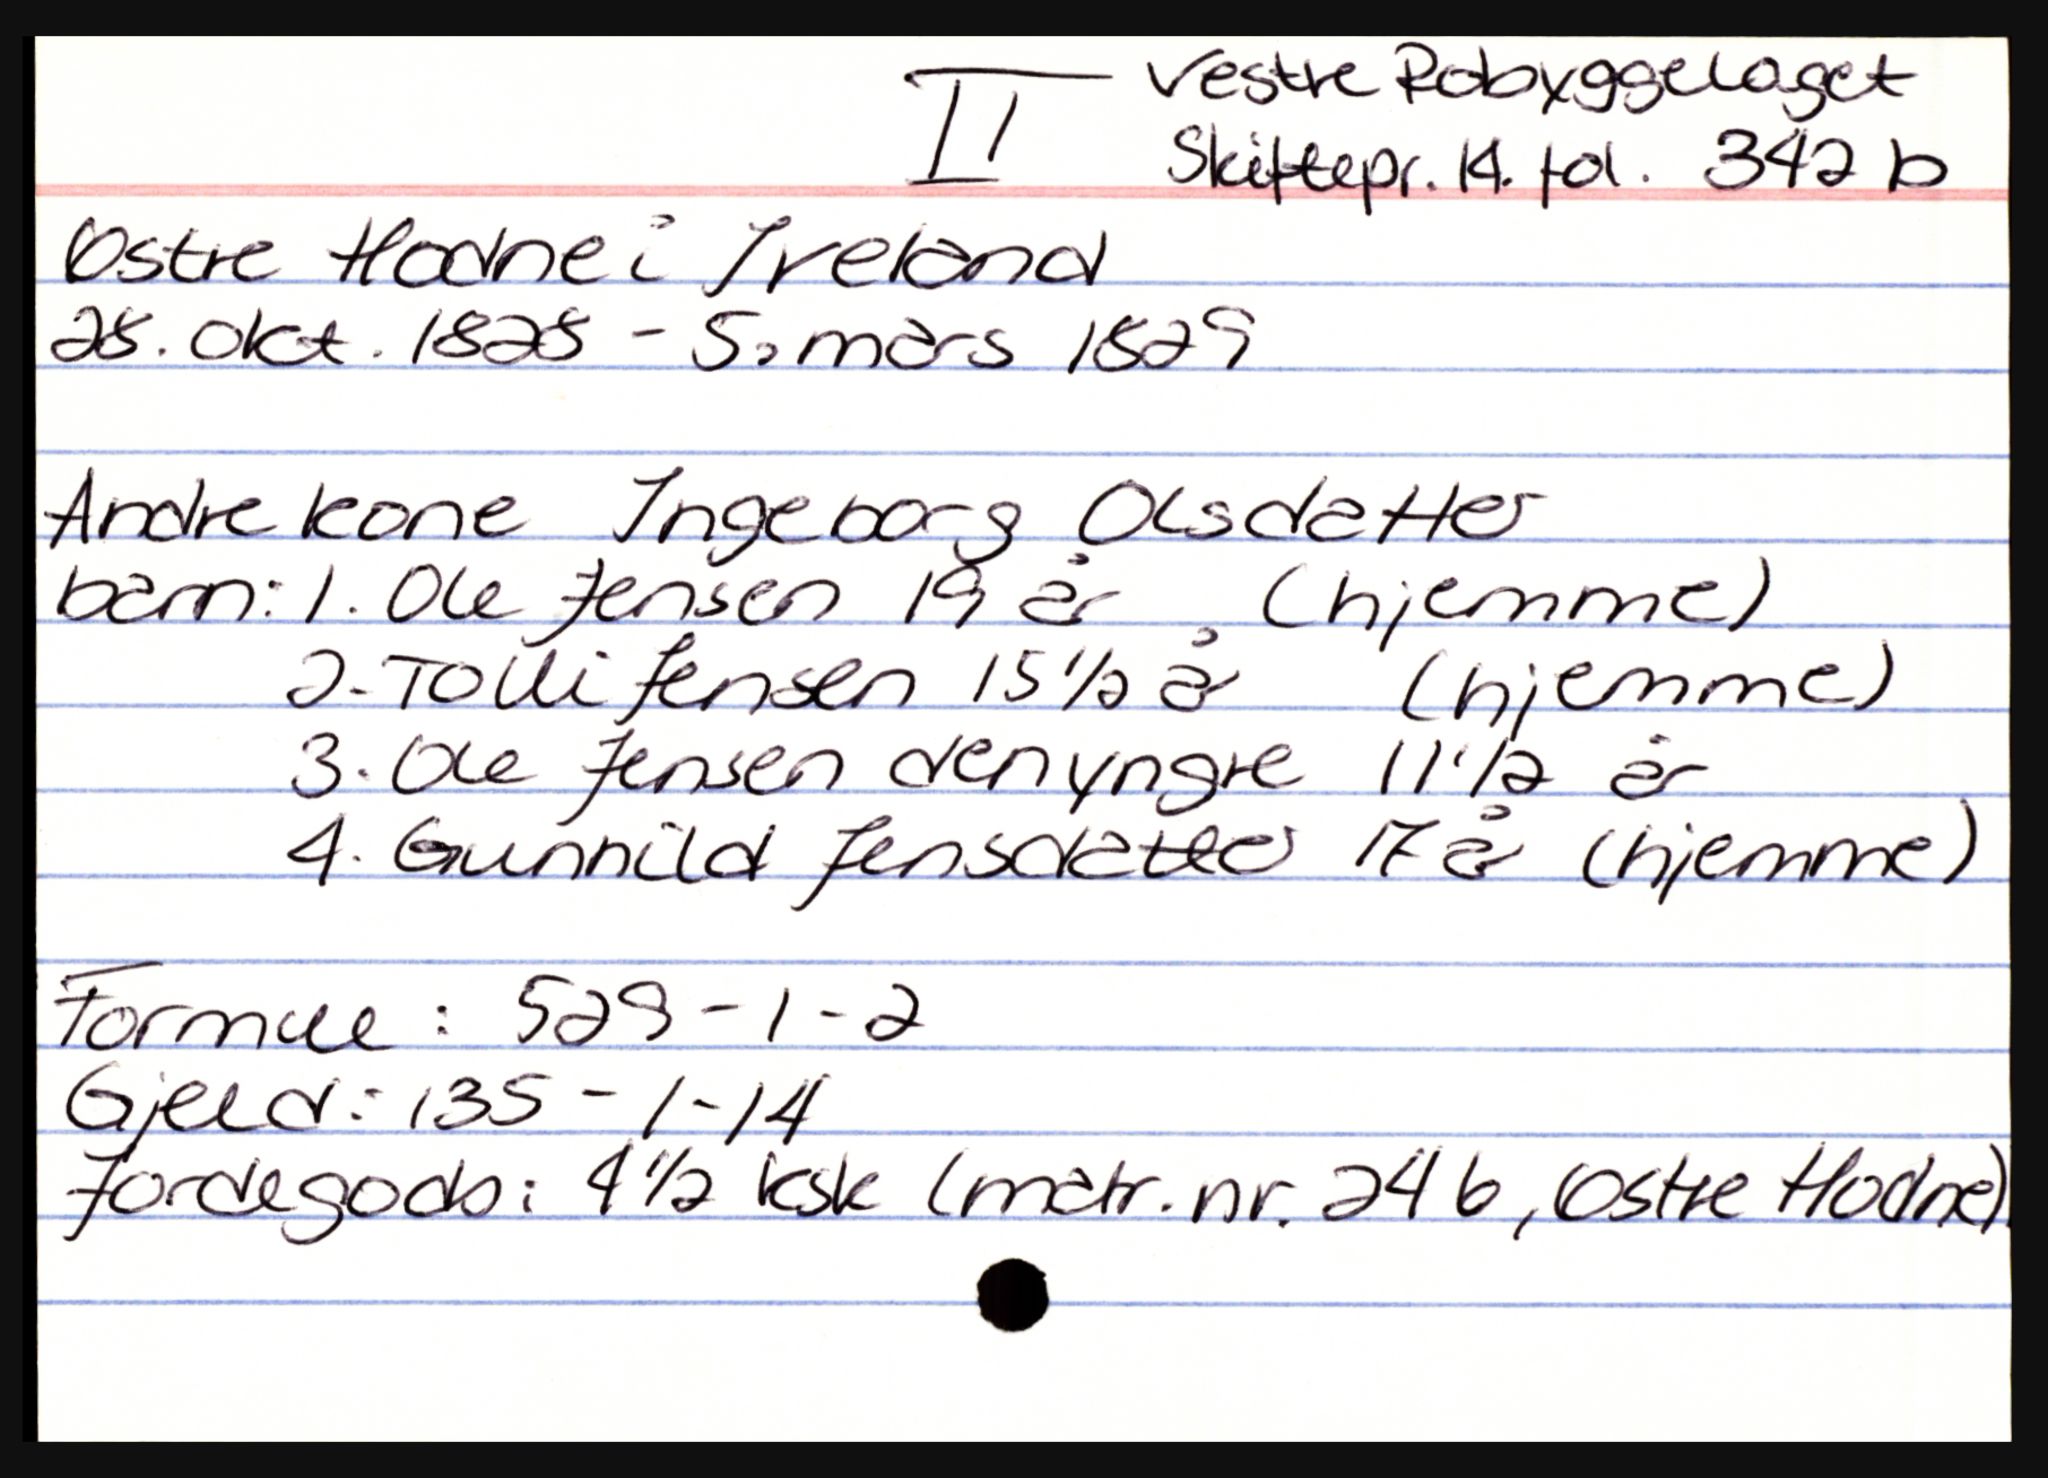 II Vestre Robyggelaget
Skiftepr. 14. fol. 342 b
Østre Hodne i Iveland
28. okt. 1828 - 5. mars 1829
Andre kone Ingeborg Olsdatter
barn: 1. Ole Jensen 19 år (hjemme)
2. Tolli Jensen 15 1/2 år (hjemme)
3. Ole Jensen den yngre 11 1/2 år
4. Gunnild Jensdatter 17 år (hjemme)
Formue: 529 - 1 - 2
Gjeld: 135 - 1 - 14
Jordegods: 4 1/2 ksk (matr. nr. 24 b, Østre Hodne).